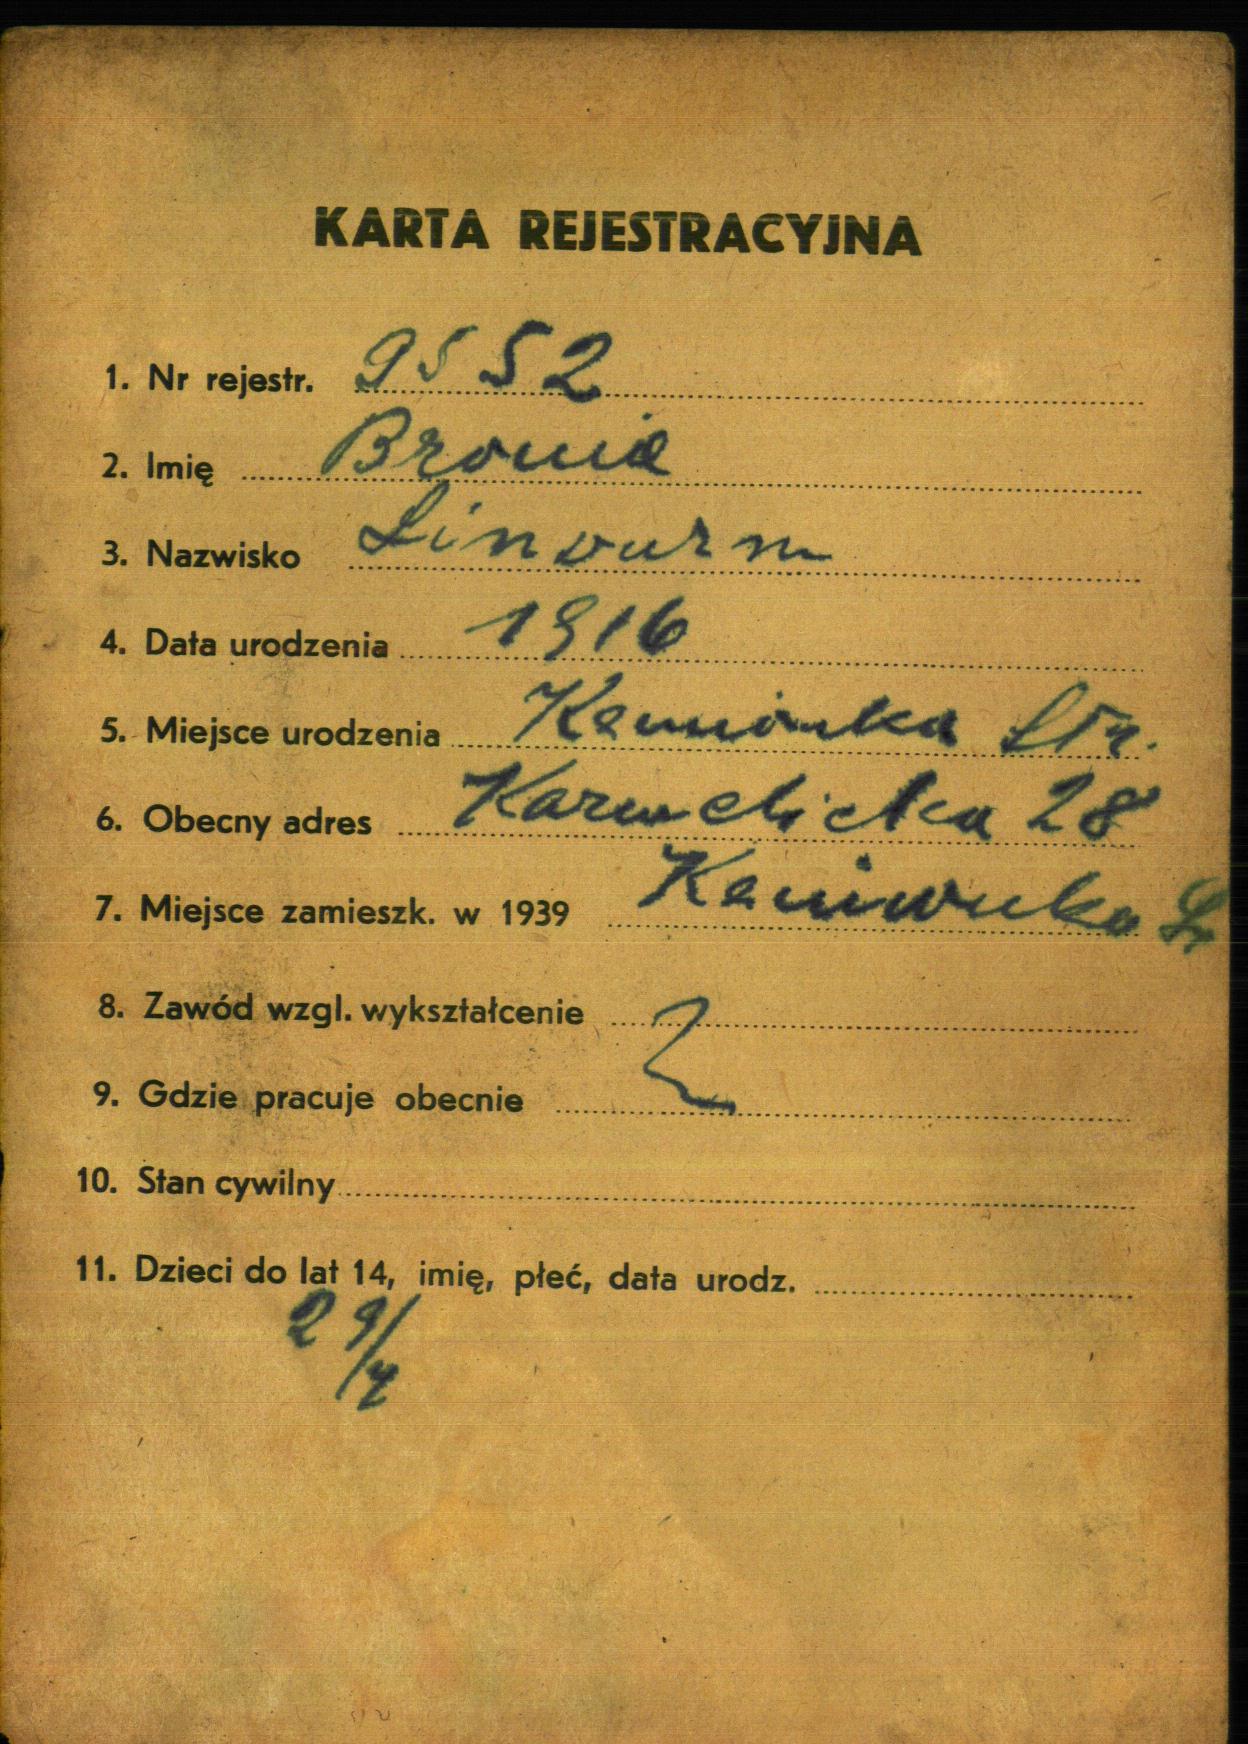 KARTA REJESTRACYJNA
1. Nr rejestr. 9552
2. Imię Bronia
3. Nazwisko Linwurm
4. Data urodzenia 1916
5. Miejsce urodzenia Kamionka Str.
6. Obecny adres Karmelicka 28
7. Miejsce zamieszk. w 1939 Kamionka
8. Zawód wzgl. wykształcenie
9. Gdzie pracuje obecnie
10. Stan cywilny
11. Dzieci do lat 14, imię, płeć, data urodz.
29/7